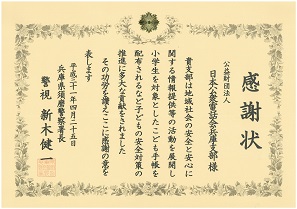 感謝状
公益財団法人
日本公衆電話会兵庫支部 様
貴支部は地域社会の安全と安心に
関する情報提供等の活動を展開し
小学生を対象としたこども手帳を
配布されるなど子どもの安全対策の
推進に多大な貢献をされました
その功労を讃えここに感謝の意を
表します
平成三十一年四月二十五日
兵庫県須磨警察署長
警視 新木健一